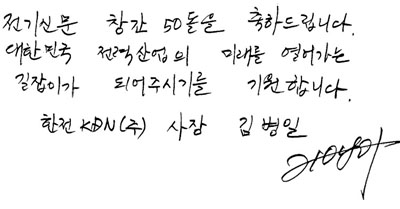 전기신문 창간 50돌을 축하드립니다.
대한민국 전력산업의 미래를 열어가는
길잡이가 되어주시기를 기원합니다.
한전 KDN(주) 사장 김병일